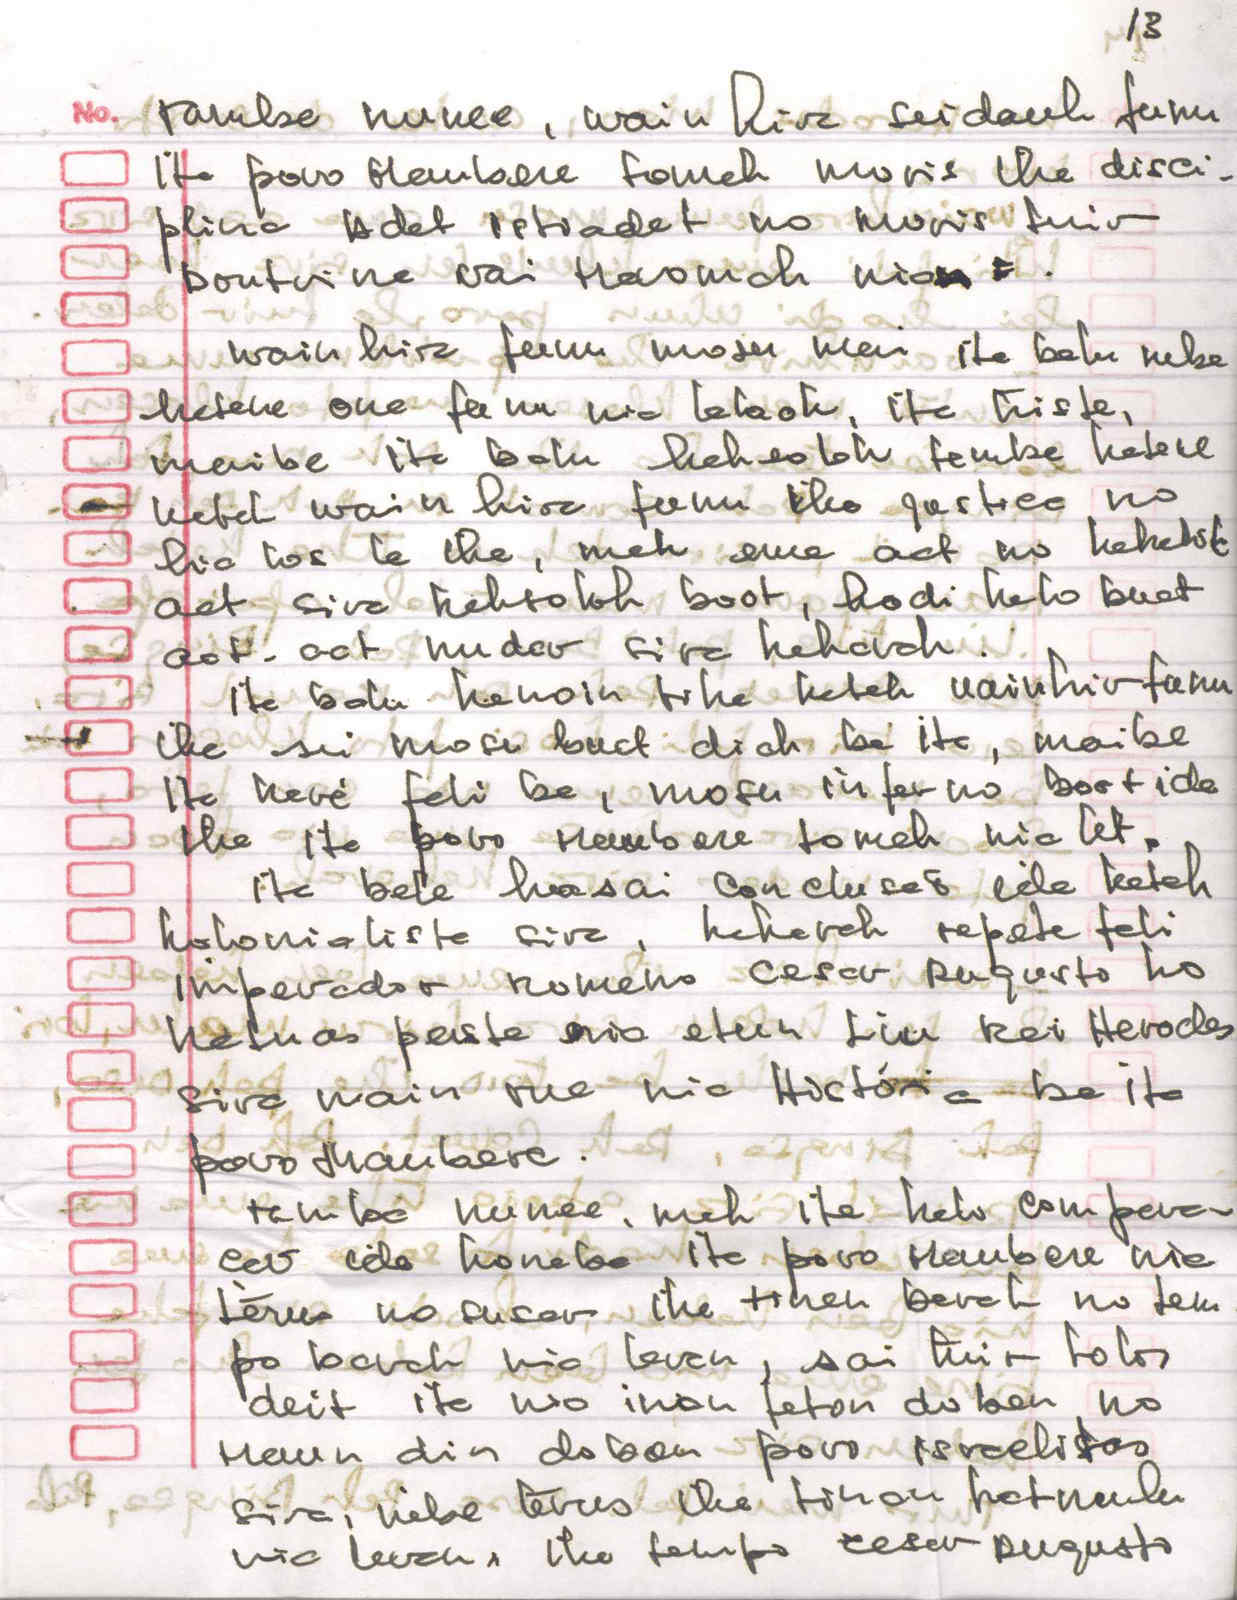 13
No.
Tamba nunee, wain hira seidauk funu
ita povo Maubere tomak moris iha disci-
plina Adat istiadat no moris tuir
Doutrina rai Maromak nian.
wain hira funu mosu mai ita balu nebe
hasene ona funu nia lalaok, ita triste,
maibe ita balu haksolok tamba hasene
katak wain hira funu iha justica no
lia los la iha, mak ema aat no hahalok
aat sira haksolok boot, hodi halo buat
aat-aat nudar sira hakarak.
Ita balu hanoin tiha katak wainhir funu
iha sei mosu buat diak ba ita, maibe
ita karé fali ba, mosu inferno boot ida
iha ita povo Maubere tomak nia let.
Ita bele hasai conclusaõ ida katak
kolonialista sira, hakarak repete fali
imperador Romano Cesar Augusto ho
hatnas paste nia etun liu Rei Herodes
sira wain rua nia História ba ita
povo Maubere.
Tamba nunee, mak ita halo compara-
cav ida konaba ita povo Maubere nia
térus no susar iha tinan barak no tem
po barak nia laran, sai tuir tolos
deit ita nia inan feton doben no
Maun alin doben povo israelitas
sira, nebe térus iha tinan hatnulu
nia laran, iha tempo Cesar Augusto